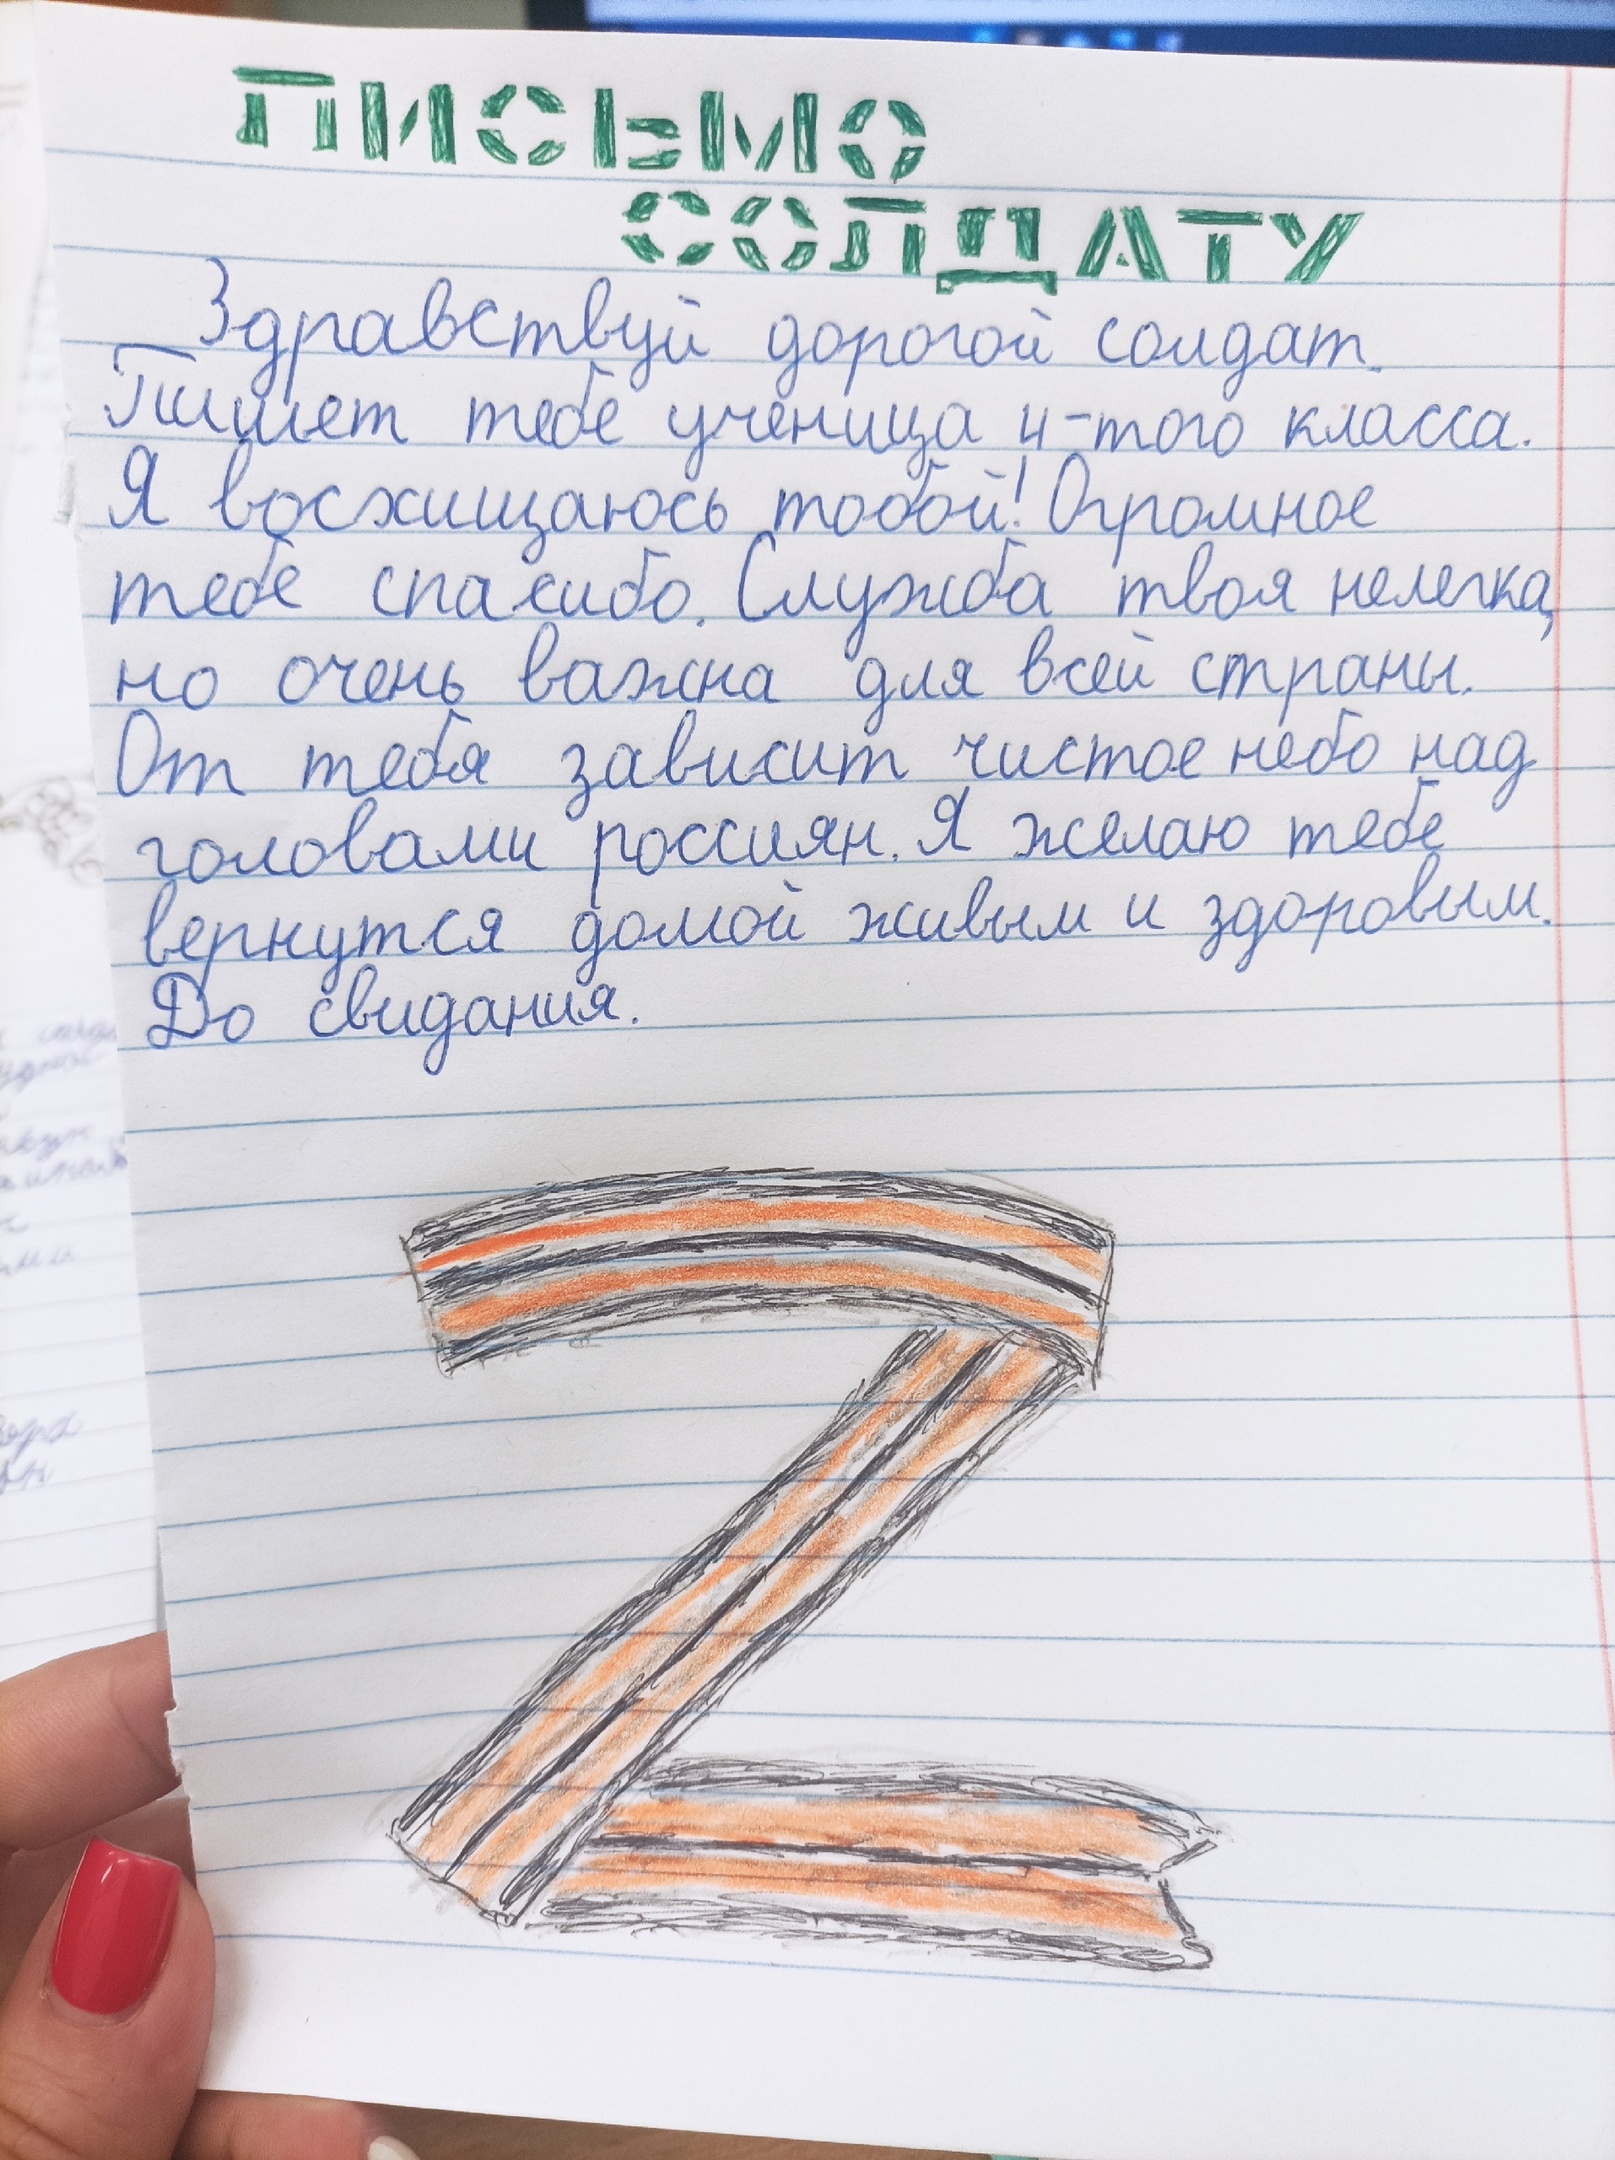 ПИСЬМО
СОЛДАТУ
Здравствуй дорогой солдат.
Пишет тебе ученица 4-того класса.
Я восхищаюсь тобой! Огромное
тебе спасибо. Служба твоя нелегка,
но очень важна для всей страны.
От тебя зависит чистое небо над
головами россиян. Я желаю тебе
вернутся домой живым и здоровым.
До свидания.
Z